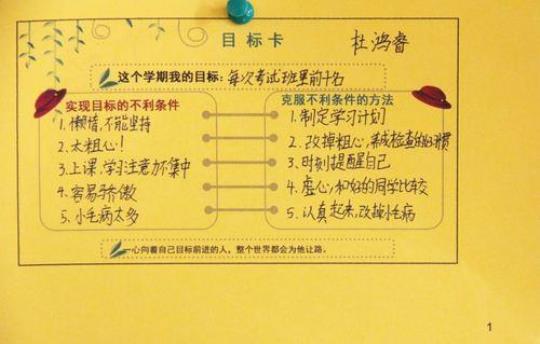 目标卡
杜鸿睿
这个学期我的目标:每次考试班里前十名
实现目标的不利条件
1.懒惰,不能坚持
2.太粗心!
3.上课,学习注意力不集中
4.容易骄傲
5.小毛病太多
克服不利条件的方法
1.制定学习计划
2.改掉粗心,养成检查的好习惯
3.时刻提醒自己
4.虚心,和好的同学比较
5.认真起来,改掉小毛病
一心向着自己目标前进的人,整个世界都会为他让路。
1